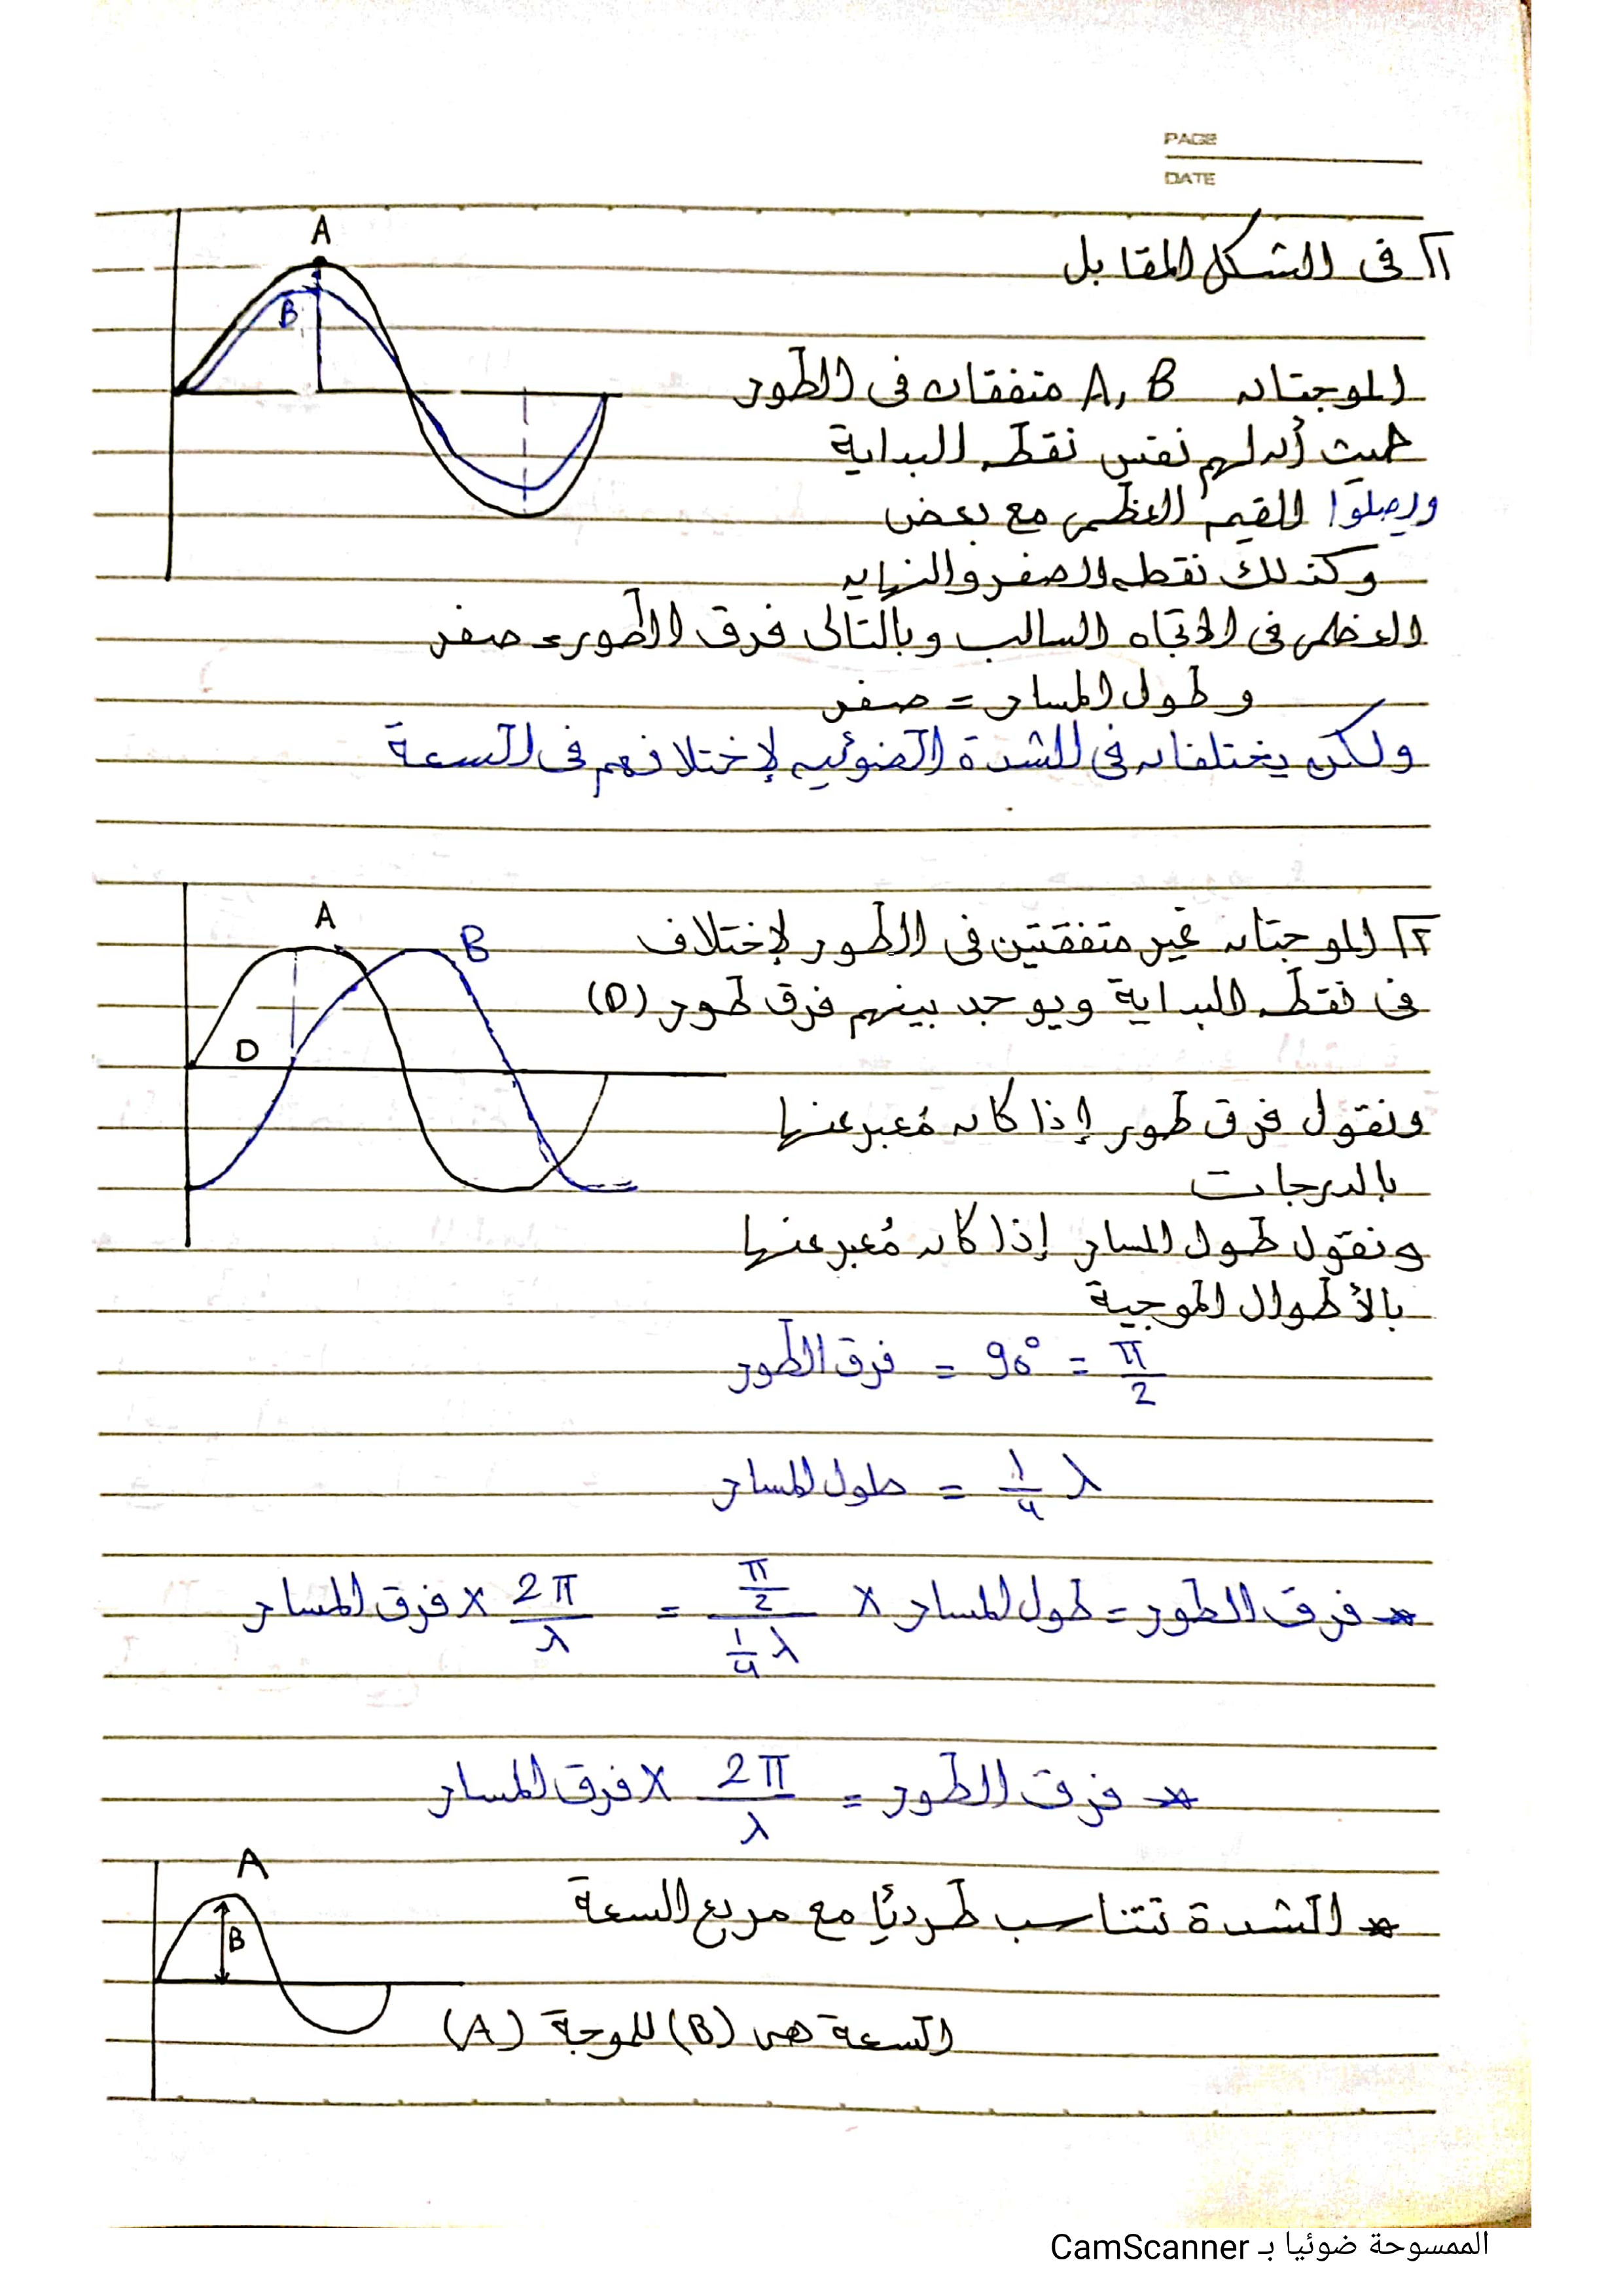 PAGE
DATE
١] فى الشكل المقابل
A
B
الموجتان A, B متفقتان فى الطور
حيث أن لهم نفس نقطه البداية
ويصلوا للقيمه العظمى مع بعض
وكذلك نقطه الصفر والنهايه
العظمى فى الاتجاه السالب وبالتالى فرق الطور = صفر
وطول المسار = صفر
ولكن يختلفان فى الشدة الضوئيه لإختلافهم فى السعة
A
B
D
٢] الموجتان غير متفقتين فى الطور لإختلاف
فى نقطه البداية ويوجد بينهم فرق طور (D)
ونقول فرق طور إذا كان مُعبر عنها
بالدرجات
ونقول طول المسار إذا كان مُعبر عنها
بالأطوال الموجية
فرق الطور = 90° = π/2
طول المسار = 1/4 λ
* فرق الطور = طول المسار × (π/2)/(1/4 λ) = 2π/λ × فرق المسار
* فرق الطور = 2π/λ × فرق المسار
A
B
* الشدة تتناسب طرديًا مع مربع السعة
السعة هى (B) للموجة (A)
الممسوحة ضوئيا بـ CamScanner